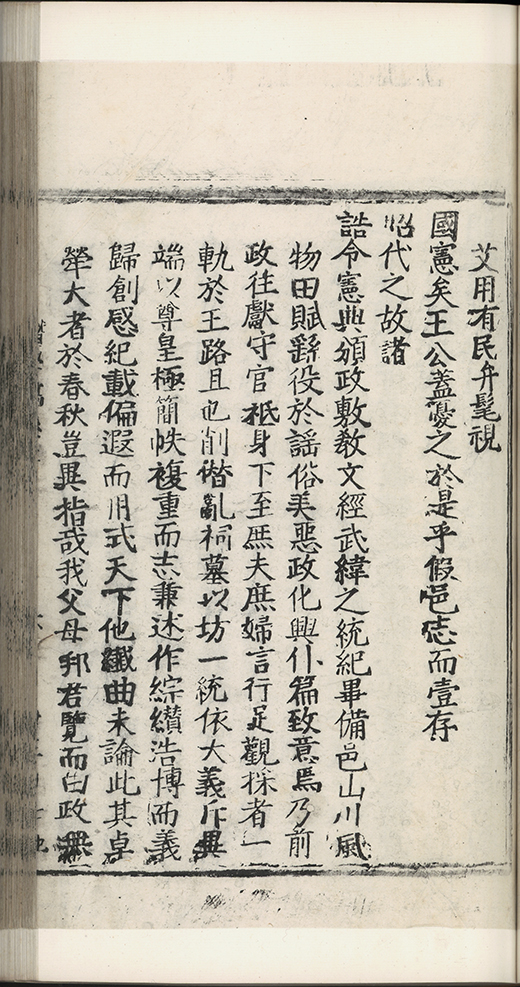 艾用有民弁髦視
國憲矣王公蓋憂之於是乎假邑志而壹存
昭代之故諸
誥令憲典頒政敷教文經武緯之統紀畢備邑山川風
物田賦繇役於謡俗美惡政化興仆篇致意焉乃前
政徃獻守官袛身下至庶夫庶婦言行足觀採者一
軌於王路且也削僣亂祠墓以坊一統依大義斥異
端以尊皇極簡帙複重而志兼述作綜纘浩博而義
歸創感紀載偏遐而用式天下他纖曲未論此其卓
犖大者於春秋豈異指哉我父母邦君覽而由政